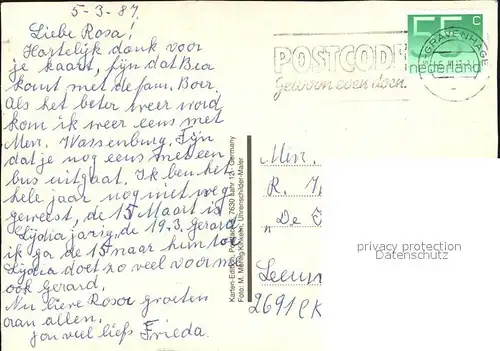 5-3-87.
Liebe Rosa!
Hartelijk dank voor
je kaart, fijn dat Bea
komt met de fam. Boer.
Als het beter weer word
kom ik weer eens met
Mevr. Wassenburg. Fijn
dat je nog eens met een
bus uitgaat. Ik ben het
hele jaar nog niet weg
geweest, de 15 Maart is
Lydia jarig, de 19.3. Gerard
ik ga de 15 naar hun toe
Lydia doet zo veel voor me
ook Gerard.
Nu lieve Rosa groeten
aan allen.
jou veel liefs Frieda.
55 c
nederland
'S-GRAVENHAGE
POSTCODE
Gewoon even doen.
Mevr.
R.
"De
Leeu
2691 CK
privacy protection
Datenschutz
7630 Lahr 12 / Germany
Uhrenschilder-Maler